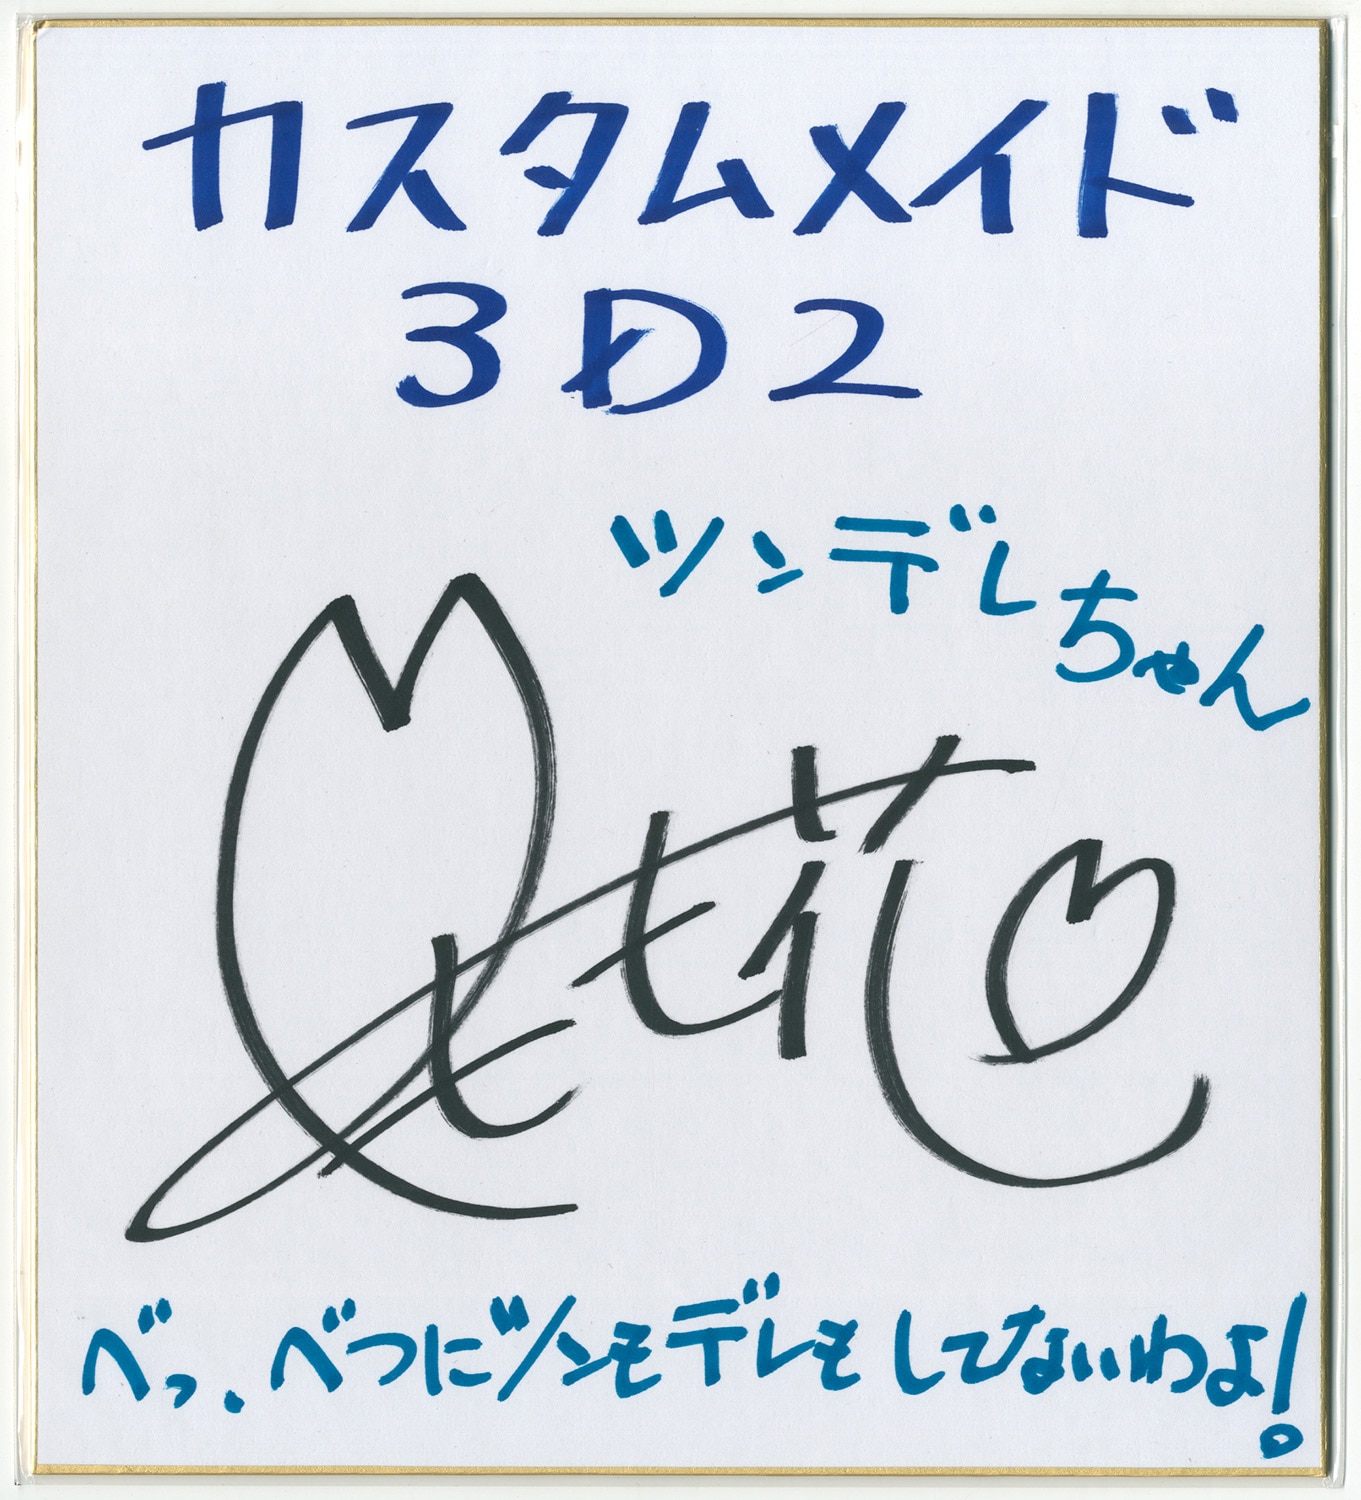 カスタムメイド
3D2
ツンデレちゃん
べっ、べつにツンもデレもしてないわよ!